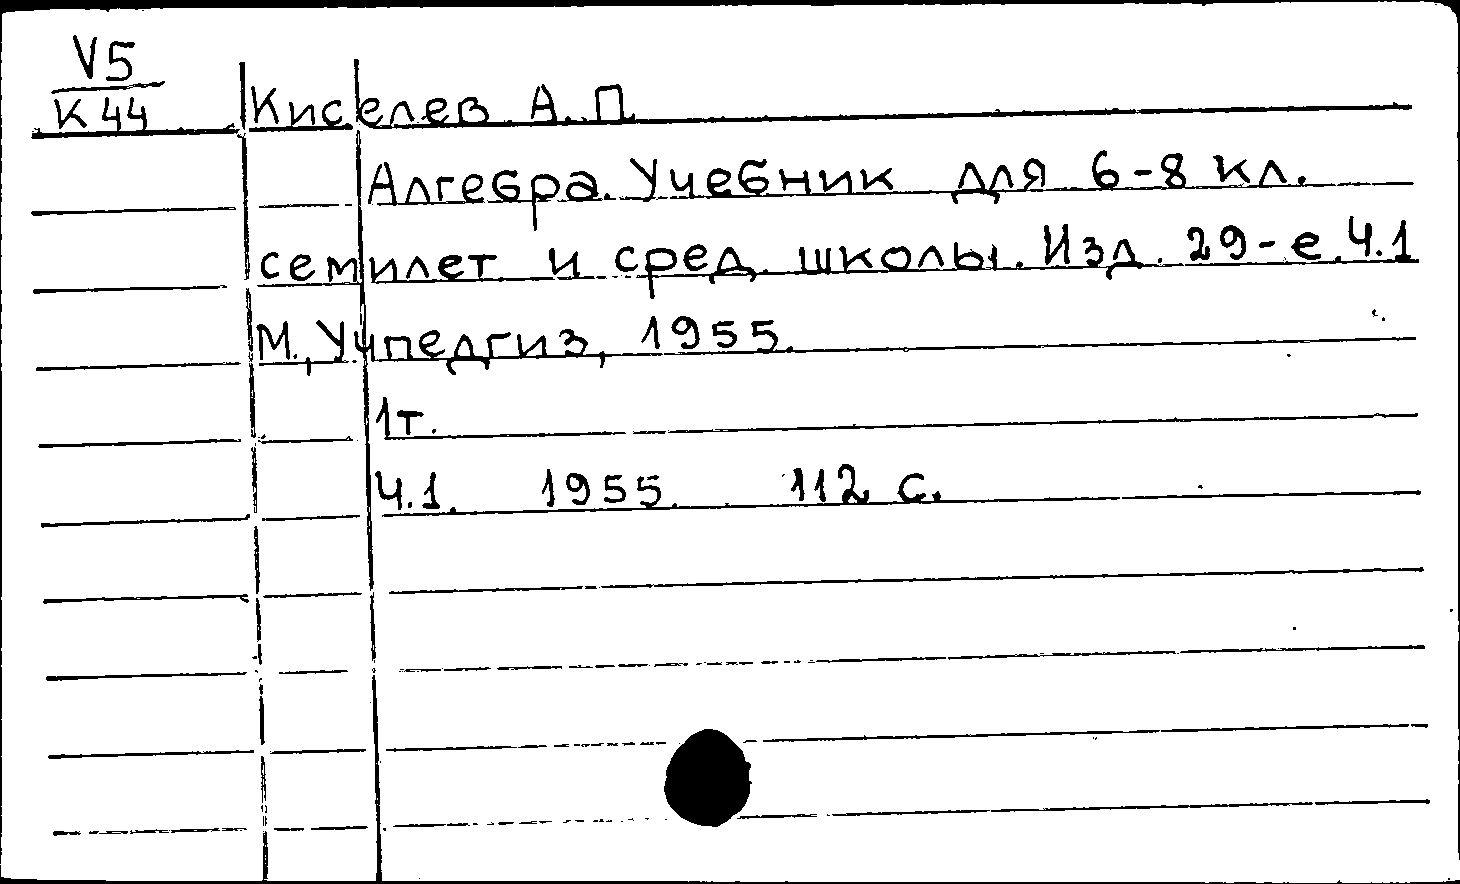 V5
К44
Киселев А. П.
Алгебра. Учебник для 6-8 кл.
семилет. и сред. школы. Изд. 29-е. Ч.1
М., Учпедгиз, 1955.
1т.
Ч.1. 1955. 112 с.